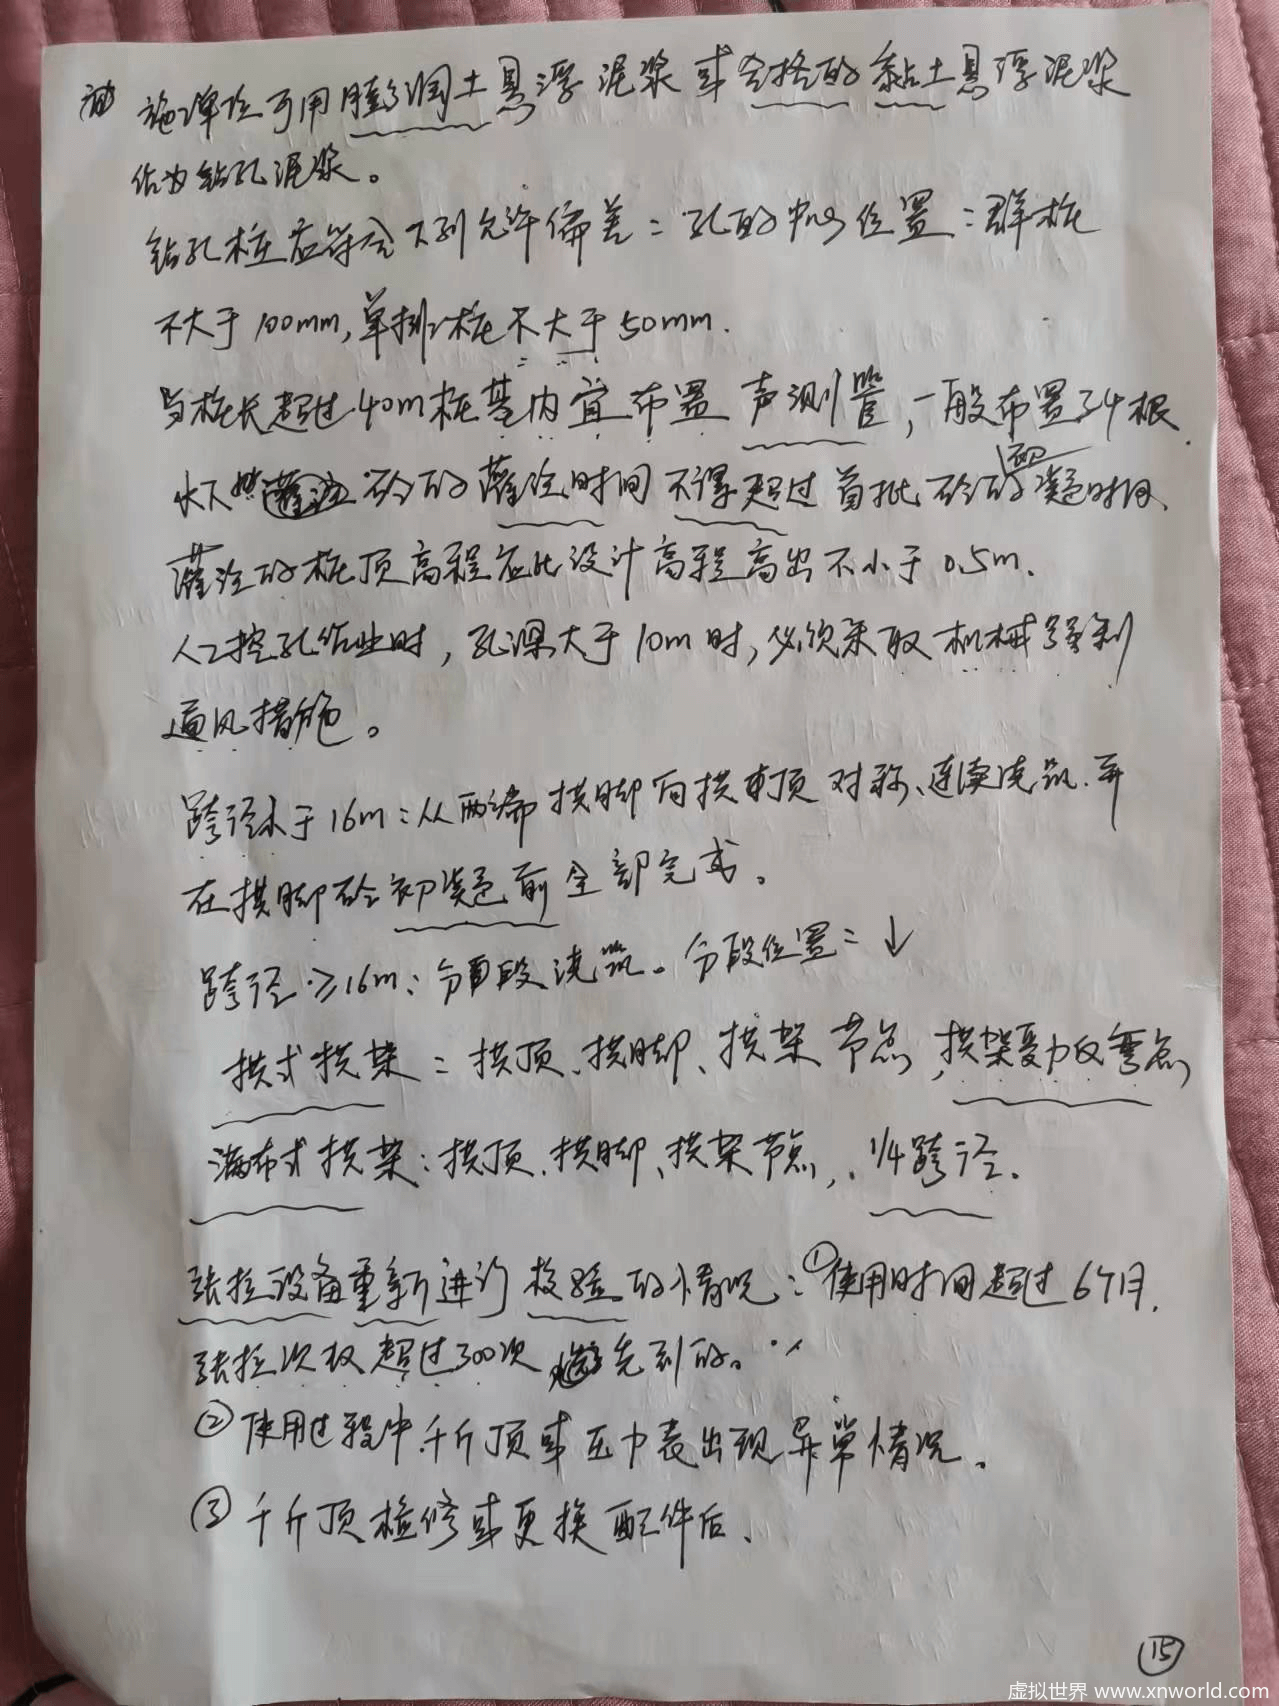 施工单位可用膨润土悬浮泥浆或合格的黏土悬浮泥浆
作为钻孔泥浆。
钻孔桩应符合下列允许偏差:孔的中心位置:群桩
不大于100mm,单排桩不大于50mm.
当桩长超过40m桩基内宜布置声测管,一般布置34根.
水下 砼的灌注时间不得超过首批砼的初凝时间.
灌注的桩顶高程应比设计高程高出不小于0.5m.
人工挖孔作业时,孔深大于10m时,必须采取机械强制
通风措施。
跨径小于16m:从两端拱脚向拱顶对称、连续浇筑.并
在拱脚砼初凝前全部完成。
跨径≥16m:分段浇筑。分段位置:↓
拱式拱架:拱顶、拱脚、拱架节点,拱架受力反弯点
满布式拱架:拱顶、拱脚、拱架节点,1/4跨径.
张拉设备重新进行校验的情况:①使用时间超过6个月.
张拉次数超过300次 先到的。
②使用过程中.千斤顶或压力表出现异常情况。
③千斤顶检修或更换配件后.
⑮
虚拟世界 www.xnworld.com